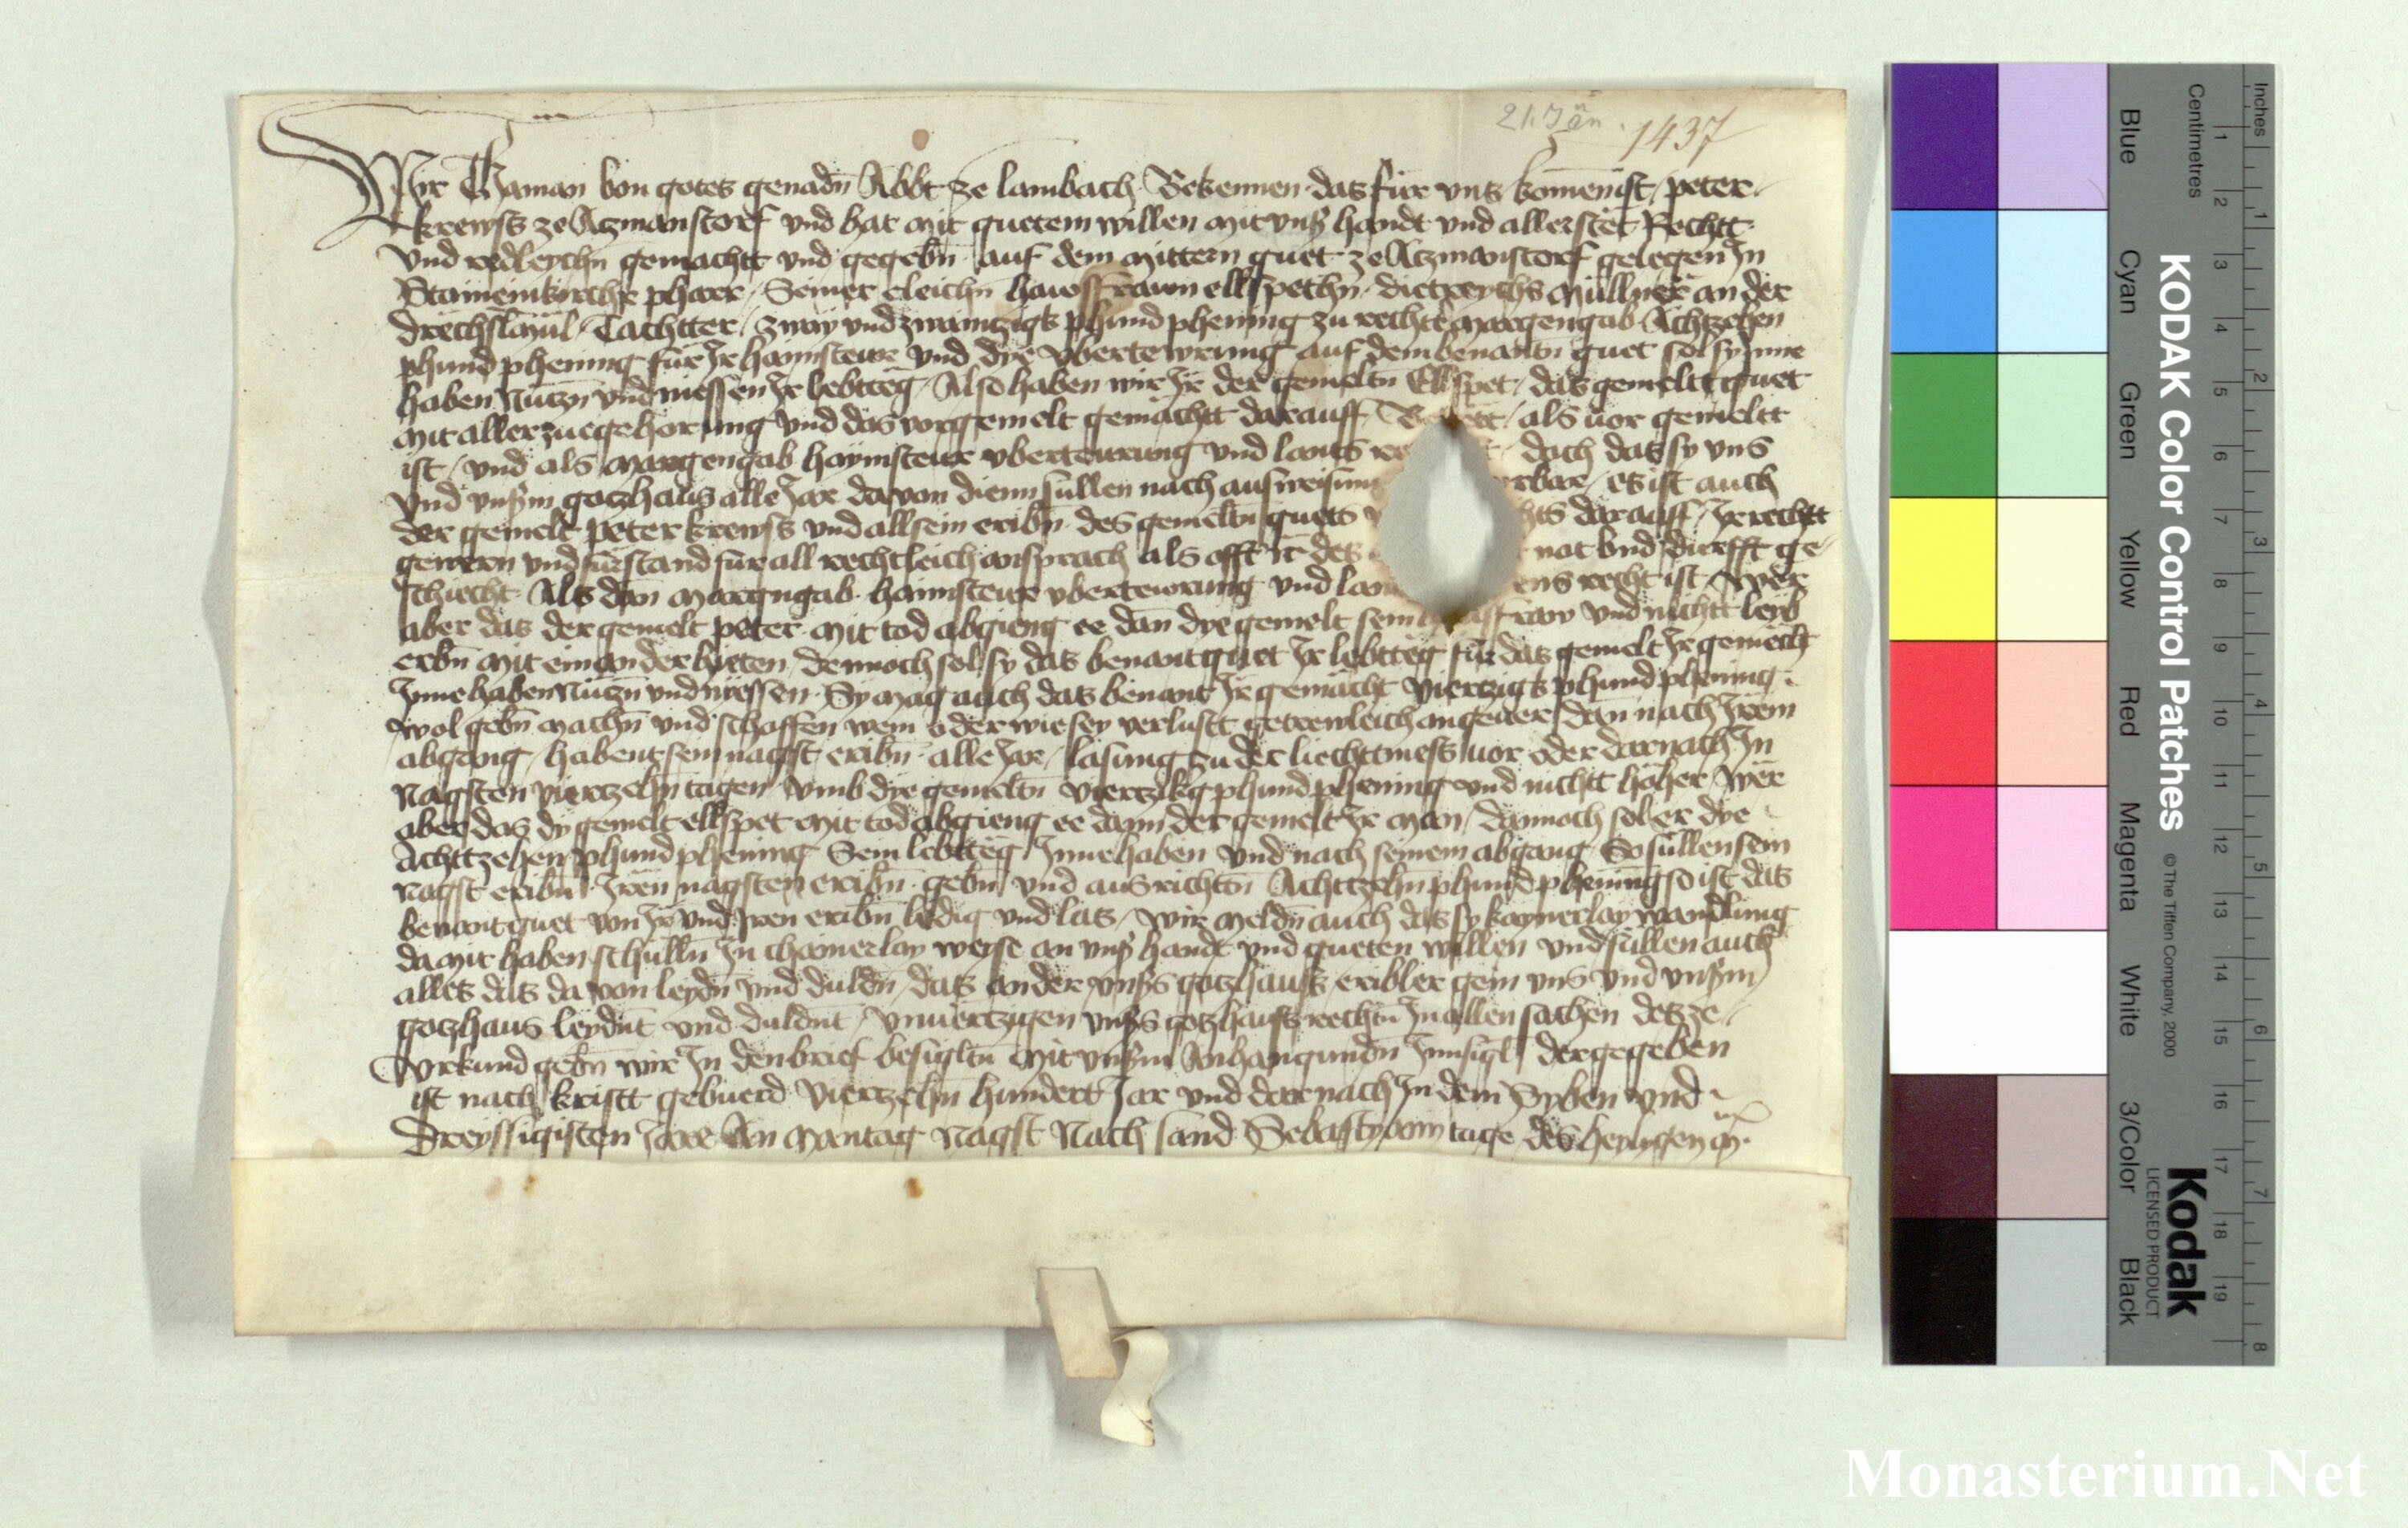 21. Jän. 1437
Wir Thaman von gotes genadn Abbt ze lambach Bekennen das für vns komen ist peter
krewss ze Aczmanstorf vnd hat mit guetem willen mit vnser handt vnd allerstet Rechtt
vnd redleychn gemachtt vnd gegebn auf dem mittern guet ze Aczmanstorf gelegen In
pharr Seiner eleichn hawsfrawn ellspethn dietreychs müllner an der
Tachtter zway vnd zwaintzigk phund phening zu rechter margengab Achtzehen
phund phening für Ir haimsteur vnd dye vbertewrung auf dem benantn guet sol sy Inne
haben Nutzn vnd niessen Ir lebtteg Also haben wir Ir der gemeltn Ellspet das gemeltt guet
mit aller zuegehorung vnd das vorgemelt gemachtt darauff als uor gemeltt
ist vnd als margengab haymsteur vberteurung vnd lants dach das sy vns
vnd vnserm gotzhaus alle Jar davon dienn sullen nach es ist auch
der gemelt peter krewss vnd all sein eribn des gemeltn guets darauff Ir rechtt
gewern vnd fürstand für all rechtleich ansprach als offt ir des nat vnd durfft ge
schiecht Als dan margngab haimsteur vberteurung vnd recht ist Wer
aber das der gemelt peter mit tod abgieng ee dan dye gemelt sein vnd nichtt leib
erbn mit einander hieten dennoch sol sy das benant guet Ir lebtteg für das gemelt Ir gemecht
Inne haben Nutzn vnd niessen Sy mag auch das benant Ir gemacht viertzigk phund phening
wol gebn machn vnd schaffen wem oder wie sey verlustt getrewleich angeuer dan nach Irem
abgang habent sein nagst eribn alle Jar lasung zu der liechtmess uor oder darnach In
Nagsten viertzehn tagen vmb dye gemeltn viertzikg phund phening vnd nichtt hoher Wer
aber das dy gemelt ellspet mit tod abgieng ee dann der gemelt Ir man dannoch sol er dye
Achttzehen phund phening Sein lebtteg Inne haben vnd nach seinem abgang So sullen sein
nagst eribn Iren nagsten eribn gebn vnd ausrichtn Achttzehn phund phening so ist das
benant guet von Ir vnd Iren eribn ledig vnd las wir meldn auch das sy kaynerlay wandlung
da mit haben schulln In chainerlay weise an vnser handt vnd gueten willen vnd sullen auch
alles das da von leydn vnd duldn das ander vnsers gotzhauss eribler gein vns vnd vnserm
gotzhaus leydnt vnd duldnt vnuertzigen vnsers gotzhauss rechtn In allen sachen des ze
vrkund gebn wir In den brief besigltn mit vnserm Anhangundn Innsigl der gegeben
ist nach kristt gebuerd viertzehn hundert Jar vnd dar nach In dem Syben vnd
Dreyssigisten Jare An Mantag Nagst Nach sand Sebastyann tage des heyligen
KODAK Color Control Patches
© The Tiffen Company, 2000
Kodak
LICENSED PRODUCT
Inches
Centimetres
1 2 3 4 5 6 7 8
1 2 3 4 5 6 7 8 9 10 11 12 13 14 15 16 17 18 19
Blue
Cyan
Green
Yellow
Red
Magenta
White
3/Color
Black
Monasterium.Net